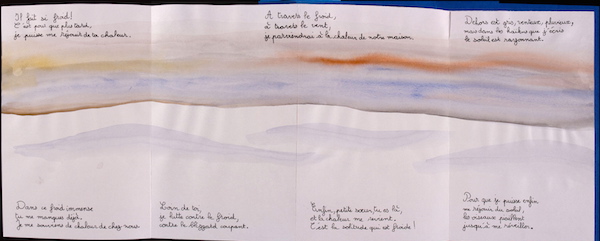 Il fait si froid!
C'est pour que plus tard,
je puisse me réjouir de ta chaleur.
A travers le froid,
à travers le vent,
je parviendrai à la chaleur de notre maison.
Dehors est gris, venteux, pluvieux,
mais dans les haïkus que j'écris
le soleil est rayonnant.
Dans ce froid immense
tu me manques déjà.
Je me souviens de chaleur de chez nous
Loin de toi,
je lutte contre le froid,
contre le blizzard
Enfin, petite sœur, tu es là,
et la chaleur me revient.
C'est la solitude qui est froide!
Pour que je puisse enfin
me réjouir du soleil,
les oiseaux piaillent
jusqu'à me réveiller.